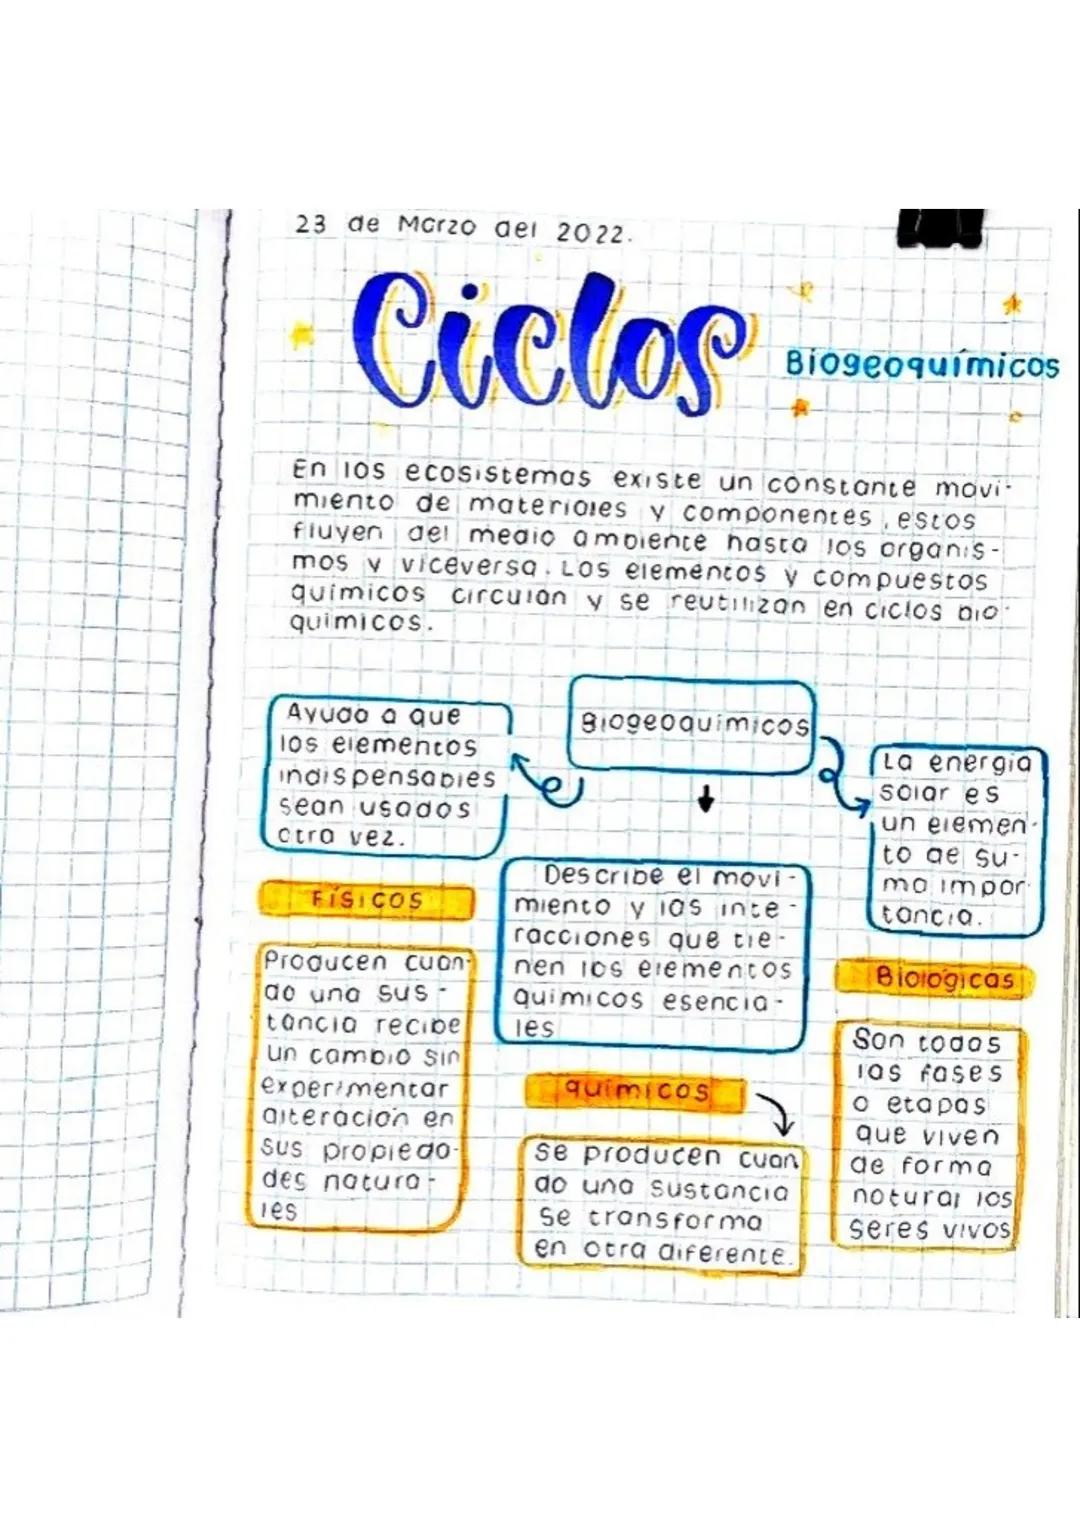 23 de Marzo del 2022.
Ciclos
Biogeoquímicos
En los ecosistemas existe un constante movi-
miento de materiales y componentes, estos
fluyen del medio ambiente hasta los organis-
mos y viceversa. Los elementos y compuestos
químicos circulan y se reutilizan en ciclos bio-
químicos.
Biogeoquímicos
Ayuda a que
los elementos
indispensables
sean usados
otra vez.
La energía
solar es
un elemen-
to de su-
ma impor-
tancia.
Describe el movi-
miento y las inte-
racciones que tie-
nen los elementos
químicos esencia-
les
Físicos
Producen cuan-
do una sus-
tancia recibe
un cambio sin
experimentar
alteración en
sus propieda-
des natura-
les
químicos
Se producen cuan
do una sustancia
se transforma
en otra diferente.
Biológicas
Son todas
las fases
o etapas
que viven
de forma
natural los
seres vivos